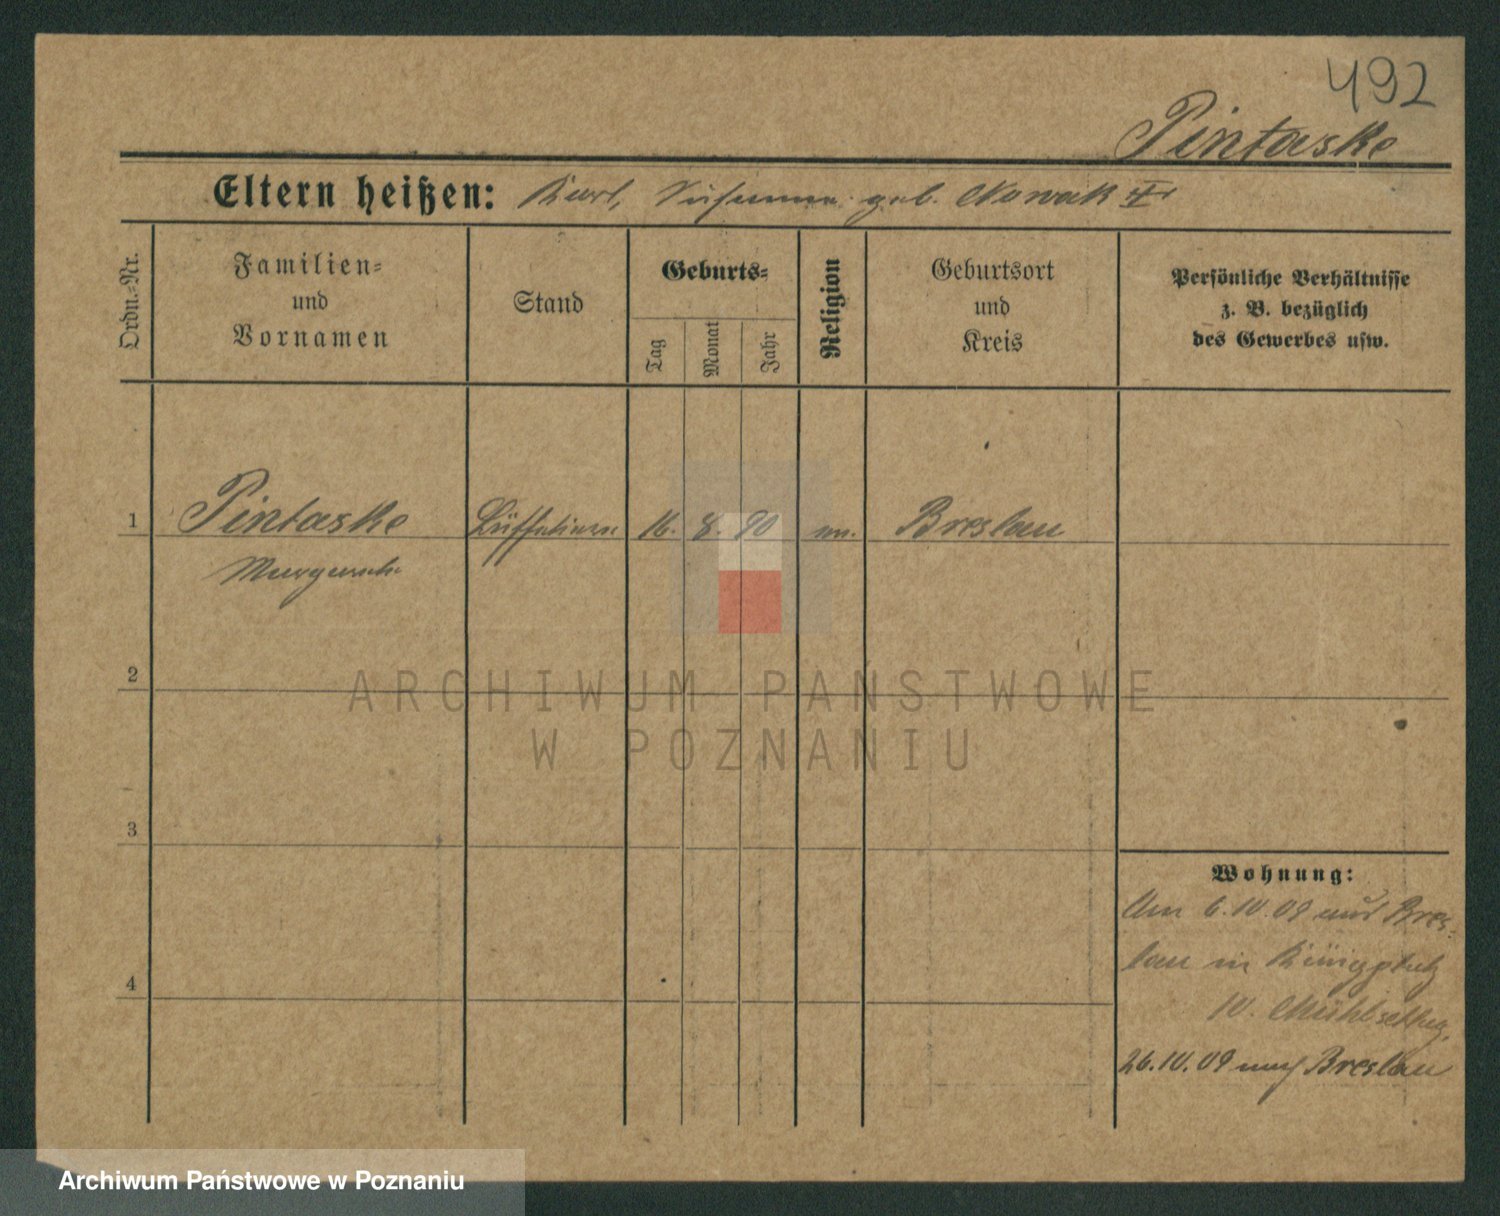 492
Pintaske
Eltern heißen: Karl, Susanna geb. Nowak
Ordn.-Nr.
Familien-
und
Vornamen
Stand
Geburts-
Tag
Monat
Jahr
Religion
Geburtsort
und
Kreis
Persönliche Verhältnisse
z. B. bezüglich
des Gewerbes usw.
1 Pintaske 16. 8. 90 Breslau
Margareth
2
ARCHIWUM PAŃSTWOWE
W POZNANIU
3
Wohnung:
Am 6.10.09 aus Bres-
lau in
4
10.
26.10.09 nach Breslau
Archiwum Państwowe w Poznaniu